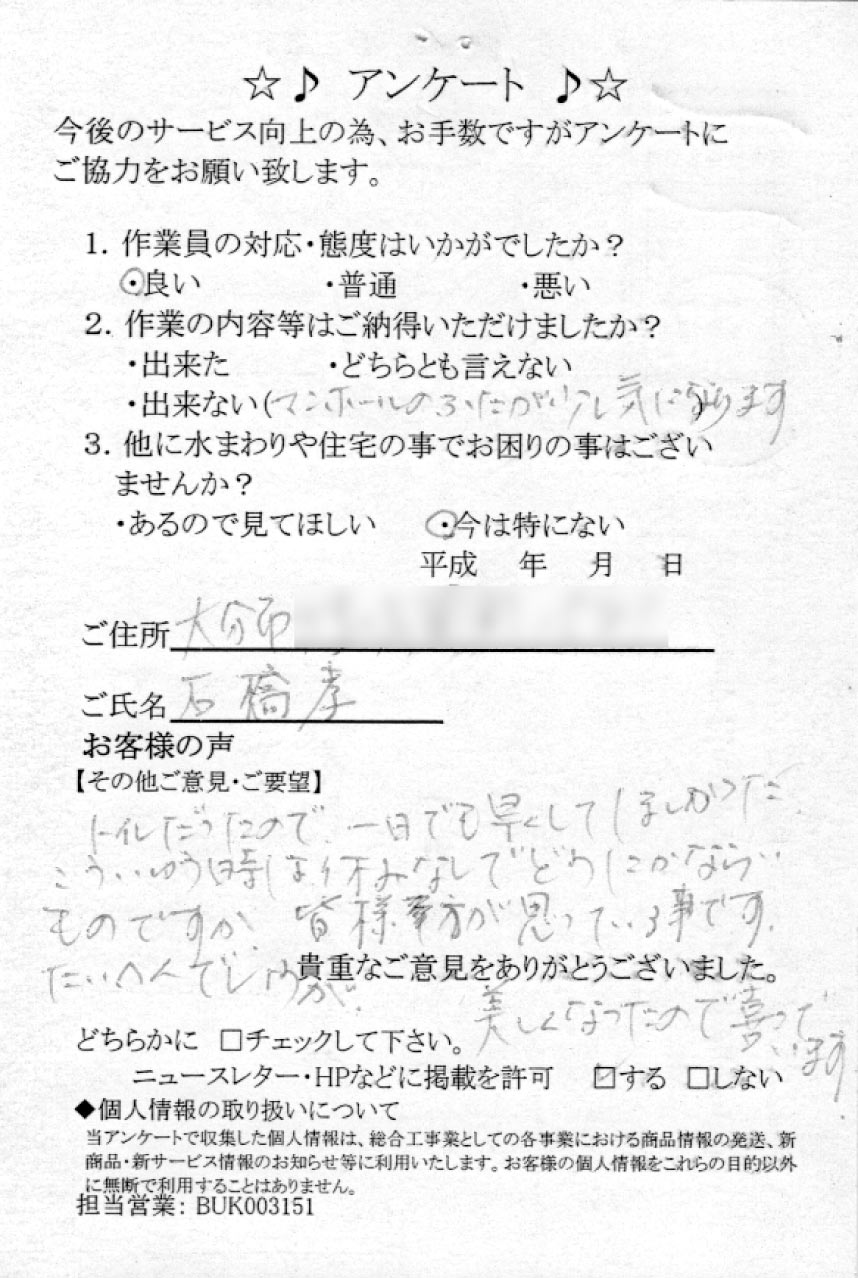 ☆♪ アンケート ♪☆
今後のサービス向上の為、お手数ですがアンケートに
ご協力をお願い致します。
1. 作業員の対応・態度はいかがでしたか?
・良い ・普通 ・悪い
2. 作業の内容等はご納得いただけましたか?
・出来た ・どちらとも言えない
・出来ない(マンホールのふたが少し気になります)
3. 他に水まわりや住宅の事でお困りの事はござい
ませんか?
・あるので見てほしい ・今は特にない
平成 年 月 日
ご住所 大分市
ご氏名 石橋孝
お客様の声
【その他ご意見・ご要望】
トイレだったので、一日でも早くしてほしかった
こういゆう時は休みなしでどうにかならない
ものですか 皆様方が思っている事です。
たいへんでしょうが 貴重なご意見をありがとうございました。
美しくなったので喜んで
います
どちらかに □チェックして下さい。
ニュースレター・HPなどに掲載を許可 ☑する □しない
◆個人情報の取り扱いについて
当アンケートで収集した個人情報は、総合工事業としての各事業における商品情報の発送、新
商品・新サービス情報のお知らせ等に利用いたします。お客様の個人情報をこれらの目的以外
に無断で利用することはありません。
担当営業: BUK003151